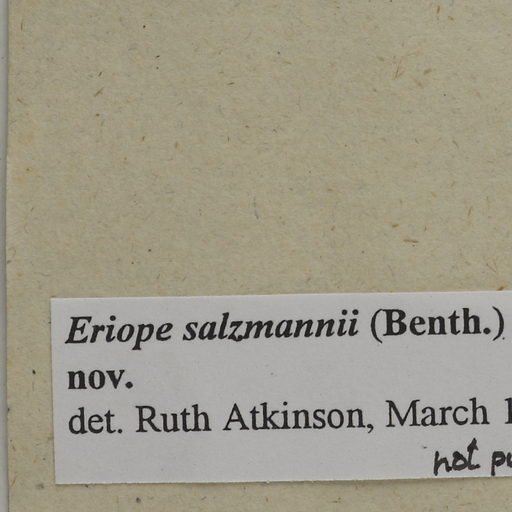 Eriope salzmannii (Benth.)
nov.
det. Ruth Atkinson, March
not